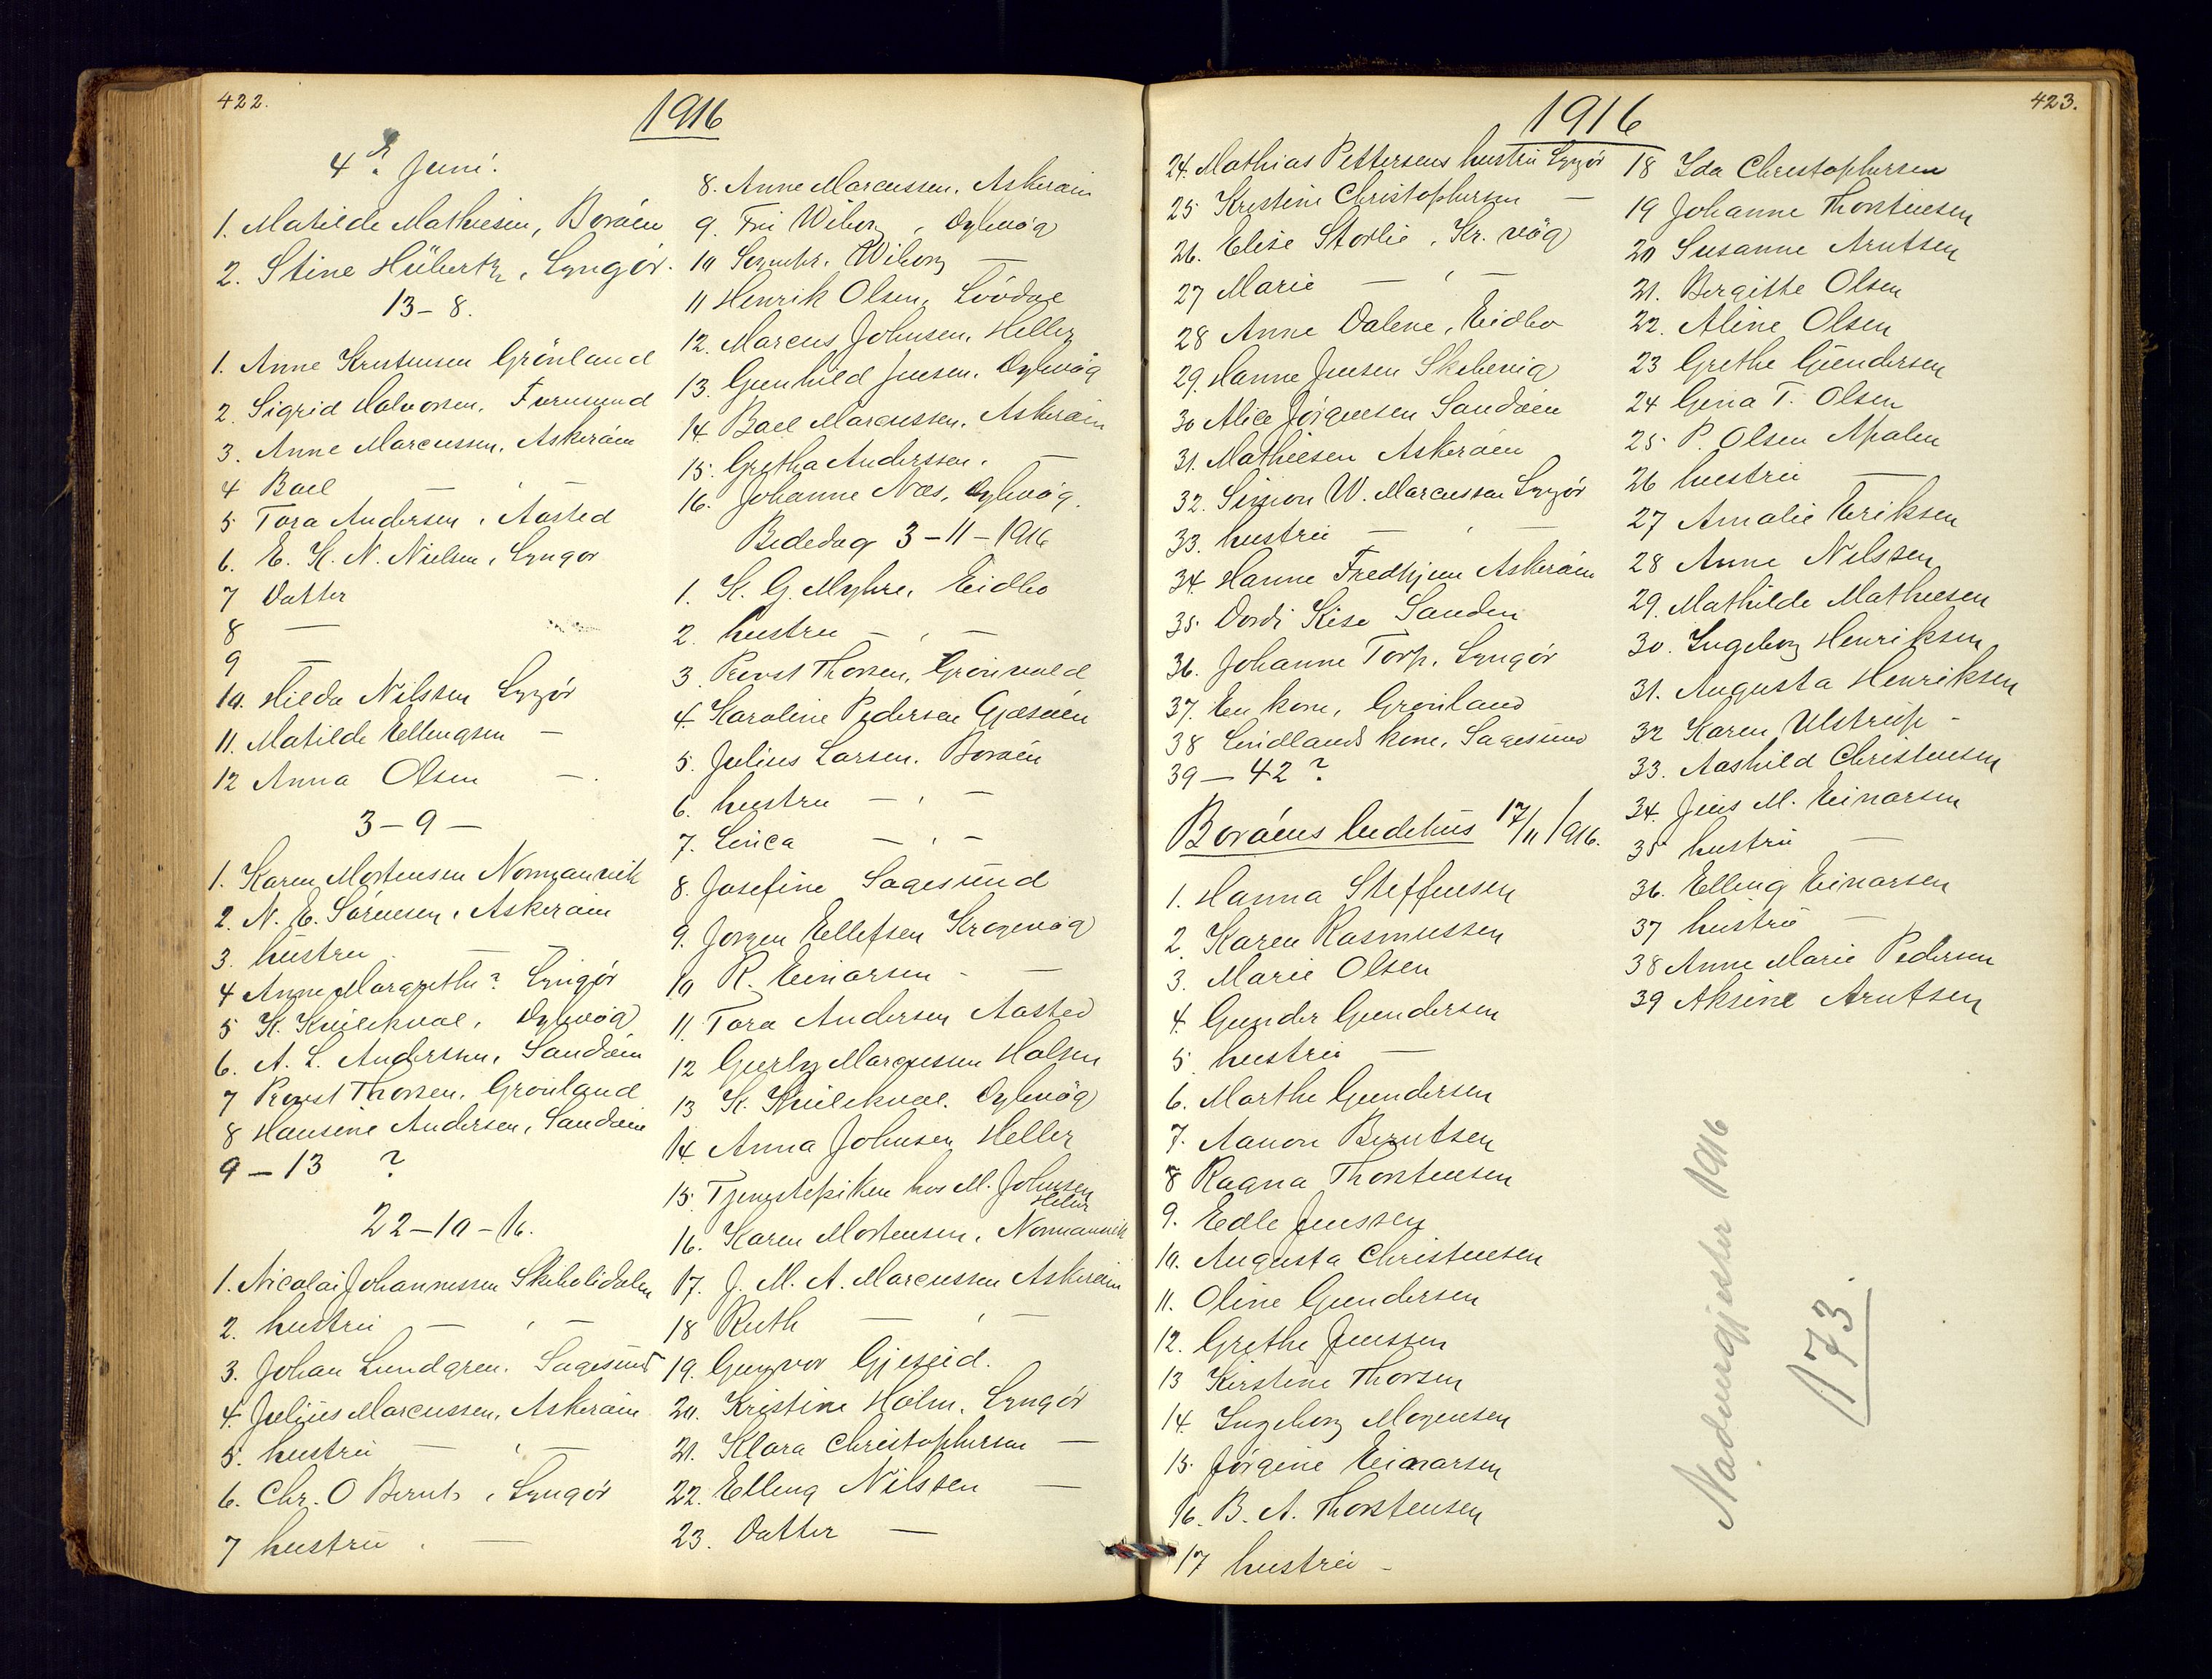 422.
1916
4de Juni.
1. Matilde Mathiesen, Boröen
2. Stine Hübertz, Lyngör.
13-8.
1. Anne Kristensen Grönland
2. Sigrid Halvorsen, Furusund
3. Anne Marcussen, Askeröen
4 Bael — , —
5 Tora Andersen, Aasted
6. E. K. N. Nielsen, Lyngör
7 Datter
8 —
9 —
10. Hilda Nilssen Lyngör
11. Matilde Ellingsen —
12 Anna Olsen —.
3-9-
1. Karen Mortensen Normanvik
2. N. E. Sörensen, Askeröen
3. hustru —
4 Anne Margrethe? Lyngör
5 K. Kvilekval, Dybvög
6. A. L. Andersen, Sandöen
7 Provst Thorsen, Grönland
8 Hansine Andersen, Sandöen
9-13 ?
22-10-16.
1. Nicolai Johannessen Skibelidalen
2. hustru — , —
3. Johan Lundgren. Sagesund
4. Julius Marcussen, Askeröen
5. hustru — , —
6. Chr. O Bernts, Lyngör
7 hustru . —
8. Anne Marcussen, Askeröen
9. Frü Wiborg, Dybvög
10 Sognepr. Wiborg —
11 Henrik Olsen, Lövdal
12. Marcus Johnsen, Heller
13. Gunhild Jensen, Dybvög
14. Bael Marcussen, Askeröen
15. Gretha Anderssen. —
16. Johanne Næs, Dybvög.
Bededag 3-11-1916
1. K. G. Myhre, Eidbo
2. hustru — , —
3. Provst Thorsen, Grönvald
4. Karoline Pedersen Gjæsöen
5. Julius Larsen. Boröen
6. hustru — , —
7. Lovica — , —
8. Josefine Sagesund
9. Jorgen Ellefsen Kragevög
10 R. Einarsen - —
11. Tora Andersen Aasted
12 Gurly Marcussen Holmen
13 K. Kvilekval. Dybvög
14. Anna Johnsen Heller
15. Tjenestepiken hos M. Johnsen Heller
16. Karen Mortensen, Normanvik
17. J. M. A. Marcussen Askeröen
18 Ruth — , —
19. Gunvor Gjeseid.
20. Kristine Holm. Lyngör
21. Klara Christophersen —
22. Elling Nilssen —
23. Datter —
1916
423.
24. Mathias Pettersens hustru Lyngör
25 Kristine Christophersen —
26. Elise Storlie, Kr. vög
27 Marie — , —
28 Anne Dalene, Eidbo
29. Hanne Jensen Skibevig
30 Alice Jörgensen Sandöen
31. Mathiesen Askeröen
32. Simon W. Marcussen Lyngör
33. hustru — , —
34. Hanne Fredhjem Askeröen
35. Dordi Kise Sanden
36. Johanne Torp. Lyngör
37. En kone, Grönland
38 Lindlands kone, Sagesund
39-42 ?
Boröens bedehus 17/11 1916.
1. Hanna Steffensen
2. Karen Rasmussen
3. Marie Olsen
4. Gunder Gundersen
5. hustru —
6. Marthe Gundersen
7. Aanon Berntsen
8 Ragna Thorstensen
9. Edle Jenssen
10. Augusta Christensen
11. Oline Gundersen
12. Grethe Jenssen
13 Kirstine Thorsen
14. Ingeborg Mogensen
15. Jörgine Einarsen
16. B. A. Thorstensen
17 hustru -
18 Ida Christophersen
19 Johanne Thorstensen
20 Susanne Arntsen
21. Bergitte Olsen
22. Aline Olsen
23 Grethe Gundersen
24 Gina T. Olsen
25. P. Olsen Apalen
26 hustru —
27 Amalie Eriksen
28 Anne Nilssen
29. Mathilde Mathiesen
30. Ingeborg Henriksen
31. Augusta Henriksen
32 Karen Ulstrup -
33. Aashild Christensen
34. Jens M. Einarsen
35 hustru —
36. Elling Einarsen
37 hustru —
38 Anne Marie Pedersen
39 Aksine Arntsen
Nadverdgjester 1916
173.